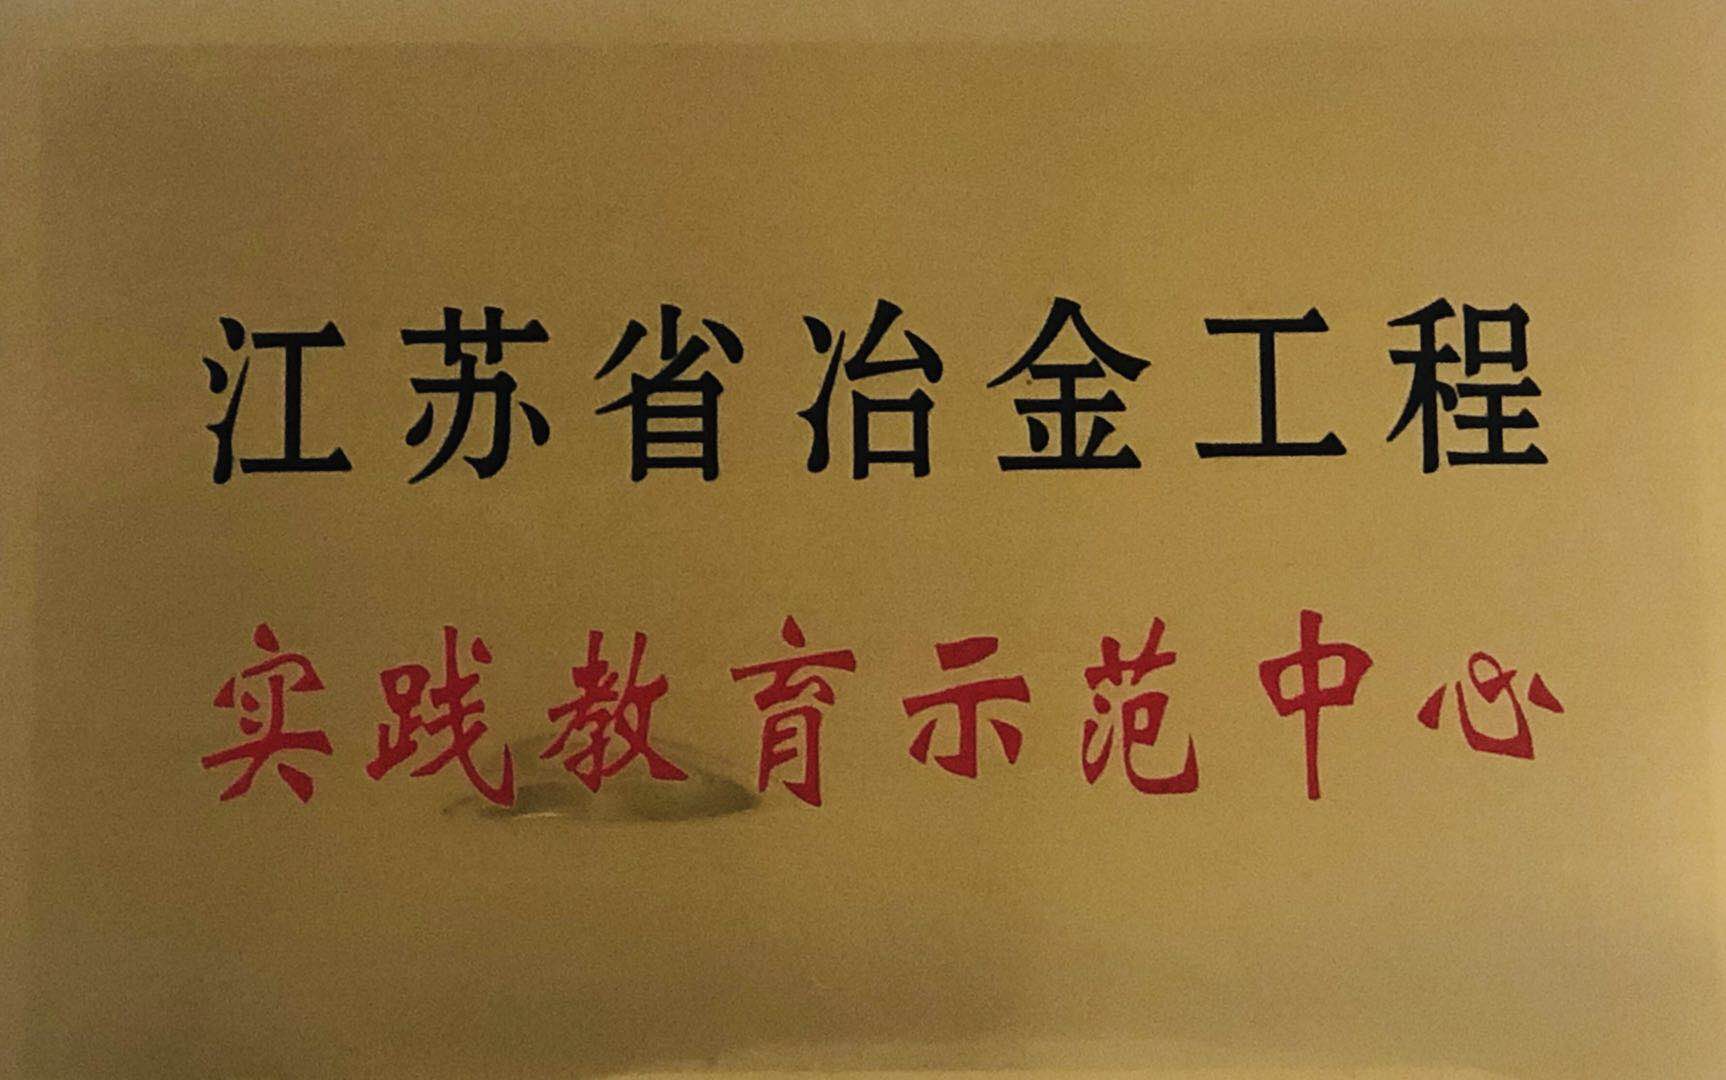 江苏省冶金工程
实践教育示范中心